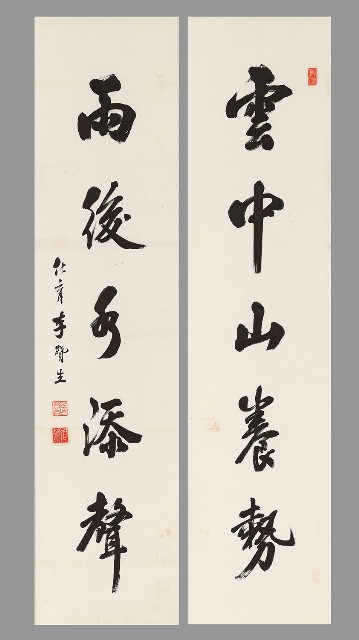 雲中山養勢
雨後水添聲
李賢生